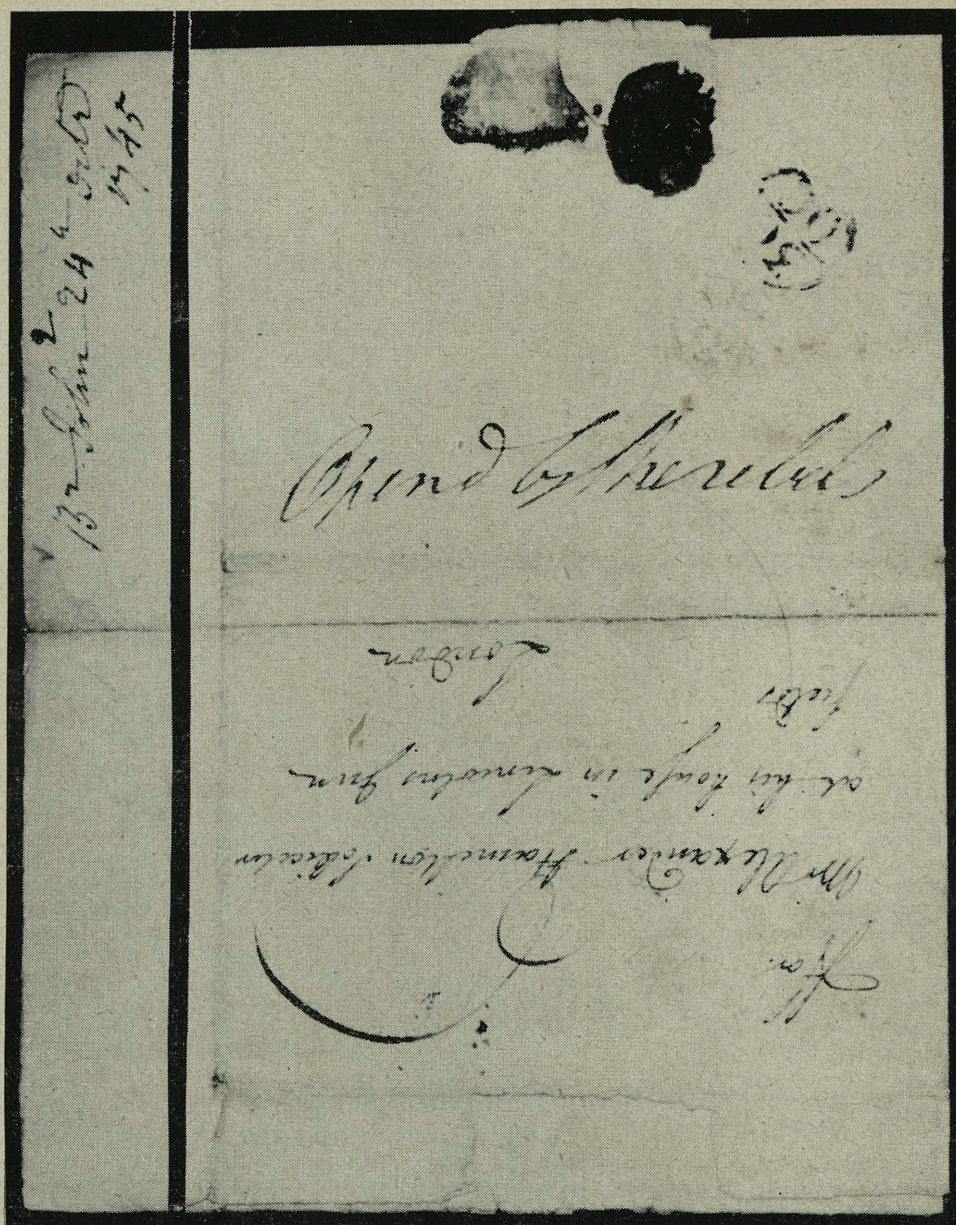 Br John 24th Octr
1745
Opend by the rebels
For
Mr Alexander Hamilton Solicitor
at his house in Lincolns Inn
fields
London